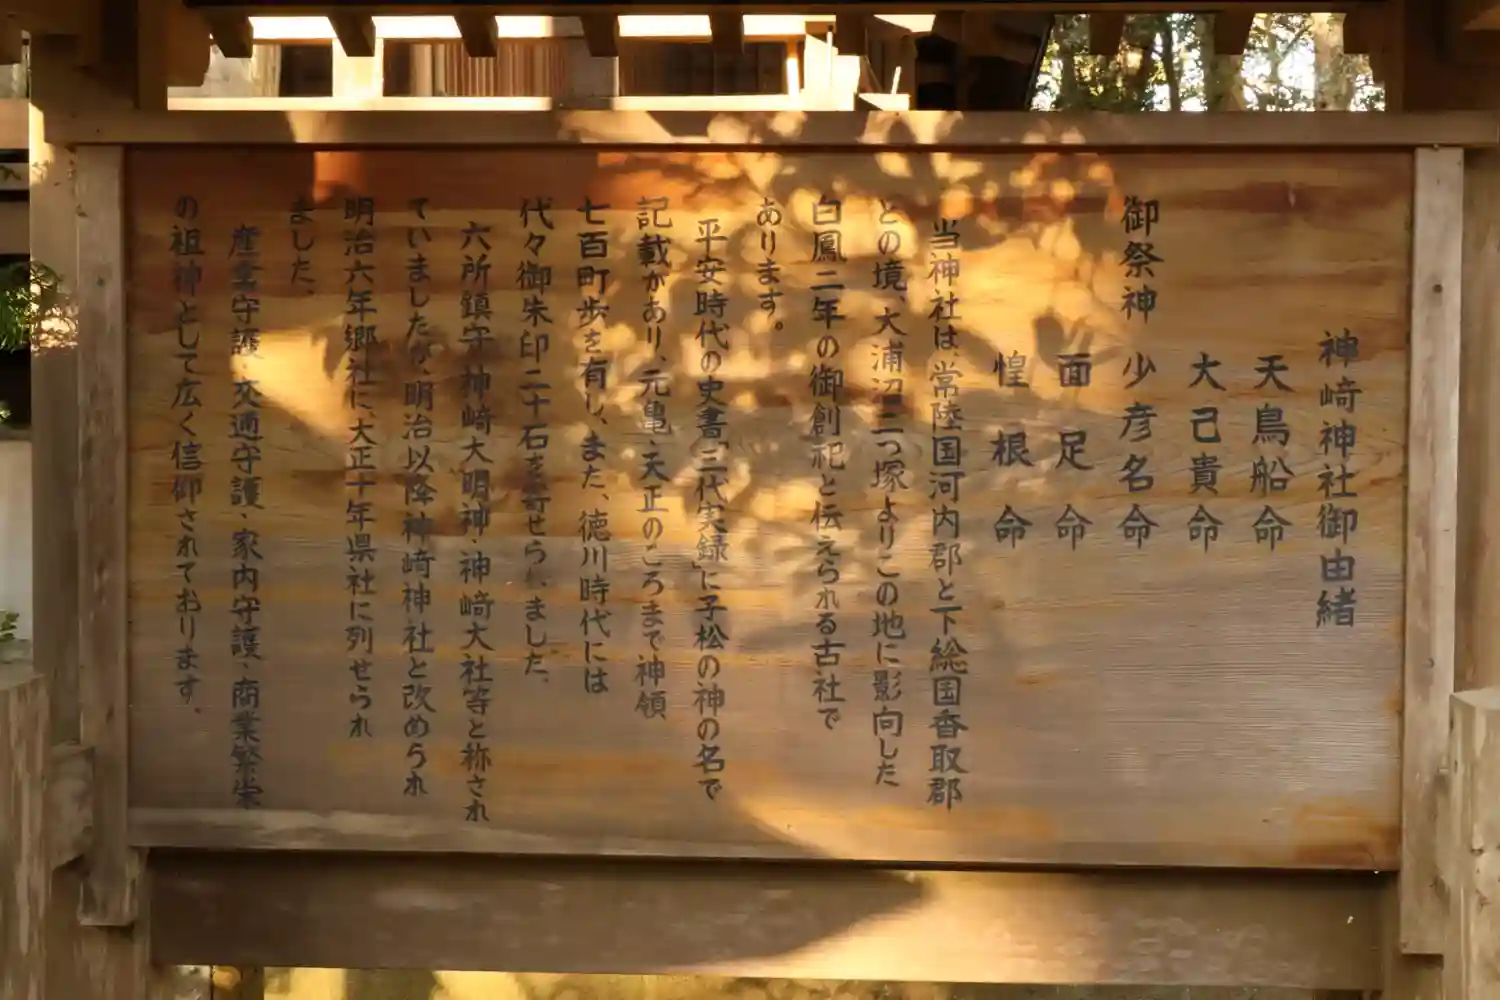 神崎神社御由緒
天鳥船命
大己貴命
御祭神 少彦名命
面足命
惶根命
当神社は、常陸国河内郡と下総国香取郡
との境、大浦沼二つ塚よりこの地に影向した
白鳳二年の御創祀と伝えられる古社で
あります。
平安時代の史書「三代実録」に子松の神の名で
記載があり、元亀、天正のころまで神領
七百町歩を有し、また、徳川時代には
代々御朱印二十石を寄せられました。
六所鎮守神崎大明神・神崎大社等と称され
ていましたが、明治以降神崎神社と改められ
明治六年郷社に、大正十年県社に列せられ
ました。
産業守護・交通守護・家内守護・商業繁栄
の祖神として広く信仰されております。